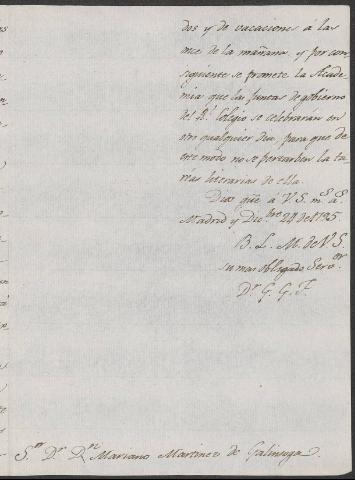 dos y de vacaciones á las
once de la mañana, y por con-
siguiente se promete la Acade-
mia que las juntas de gobierno
del Rl. Colegio se celebrarán en
otro qualquier dia, para que de
este modo no se perturben las ta-
réas literarias de ella.
Dios güe á V.S. ms. as.
Madrid y Dicbre 24 de 1795.
B. L. M. de V.S.
su mas obligado Servor
Dr. G. G. F.
Sor. Dr. Dn. Mariano Martinez de Galinsoga.